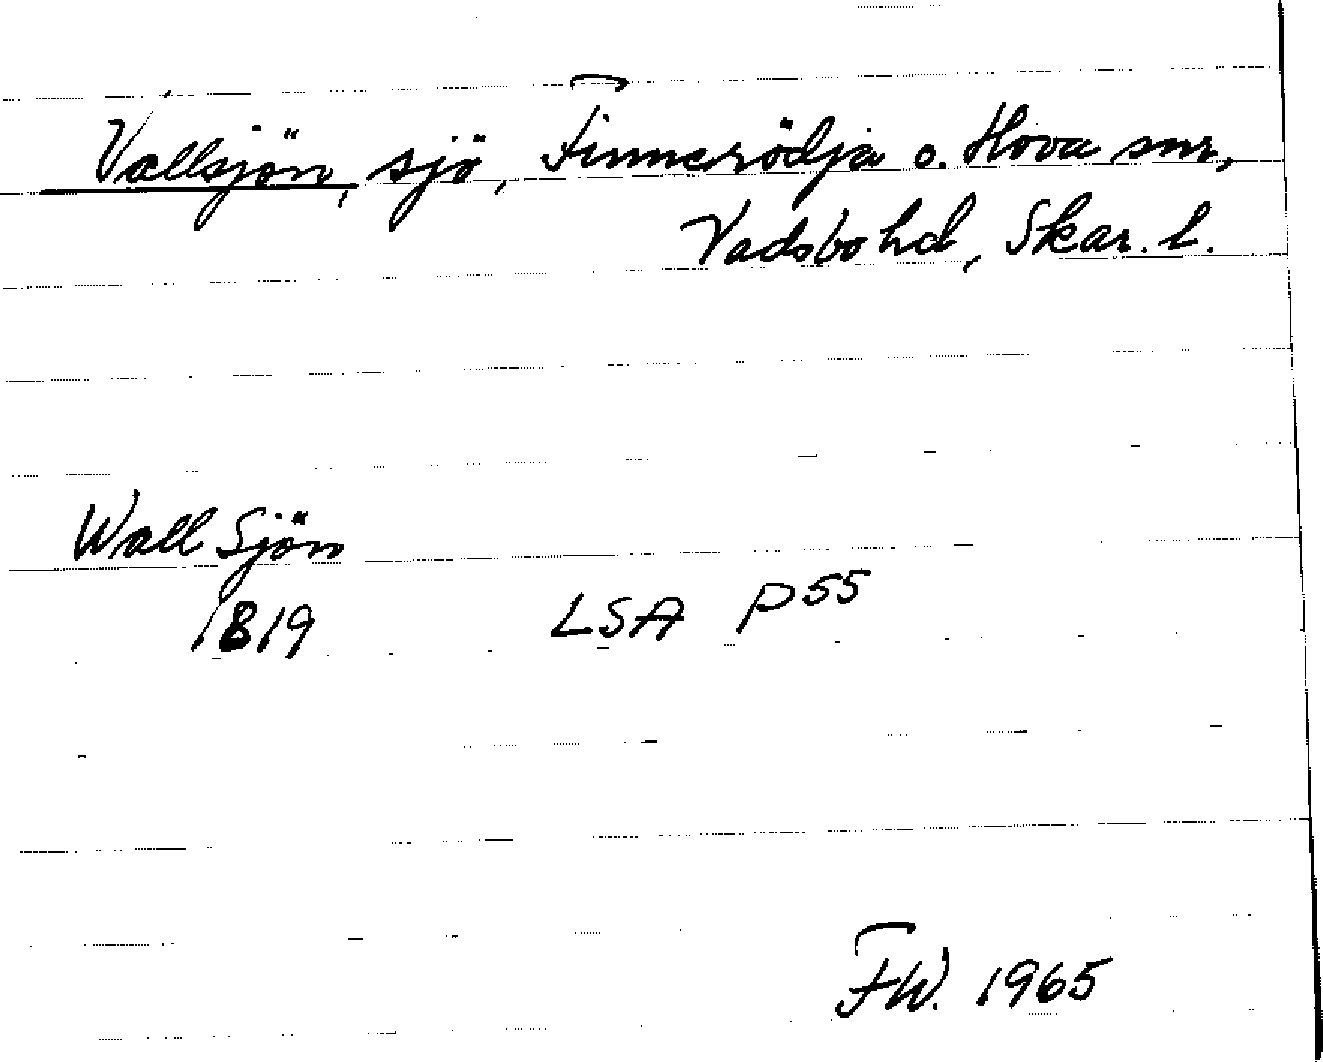 Vallsjön, sjö, Finnerödja o. Hova snr,
Vadsbo hd, Skar. l.
Wall Sjön
1819 LSA P55
FW. 1965